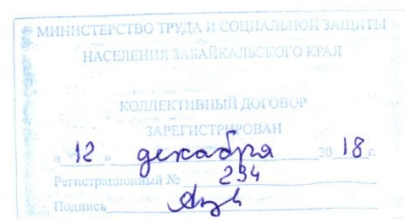 МИНИСТЕРСТВО ТРУДА И СОЦИАЛЬНОЙ ЗАЩИТЫ
НАСЕЛЕНИЯ ЗАБАЙКАЛЬСКОГО КРАЯ
КОЛЛЕКТИВНЫЙ ДОГОВОР
ЗАРЕГИСТРИРОВАН
« 12 » декабря 20 18 г.
Регистрационный № 234
Подпись